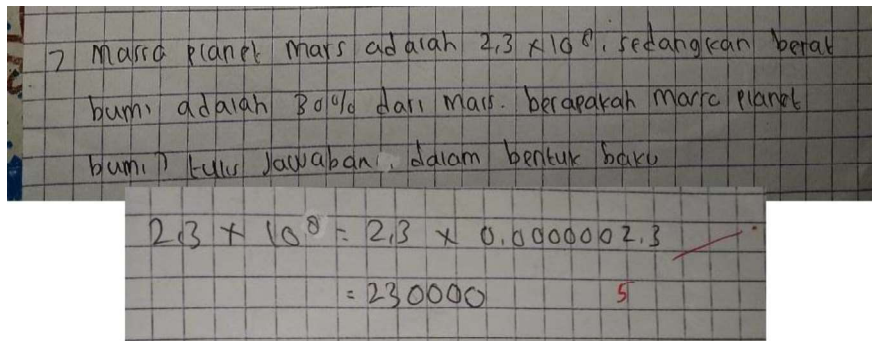 7 Massa planet Mars adalah 2,3 × 10⁸, sedangkan berat
bumi adalah 30% dari Mars. berapakah Massa planet
bumi? tulis Jawaban, dalam bentuk baku
2,3 × 10⁸ = 2,3 × 0.0000002.3
= 230000
5